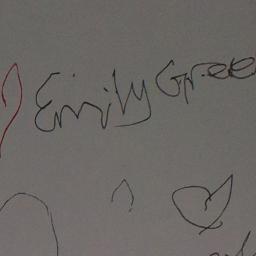 Emily Gree